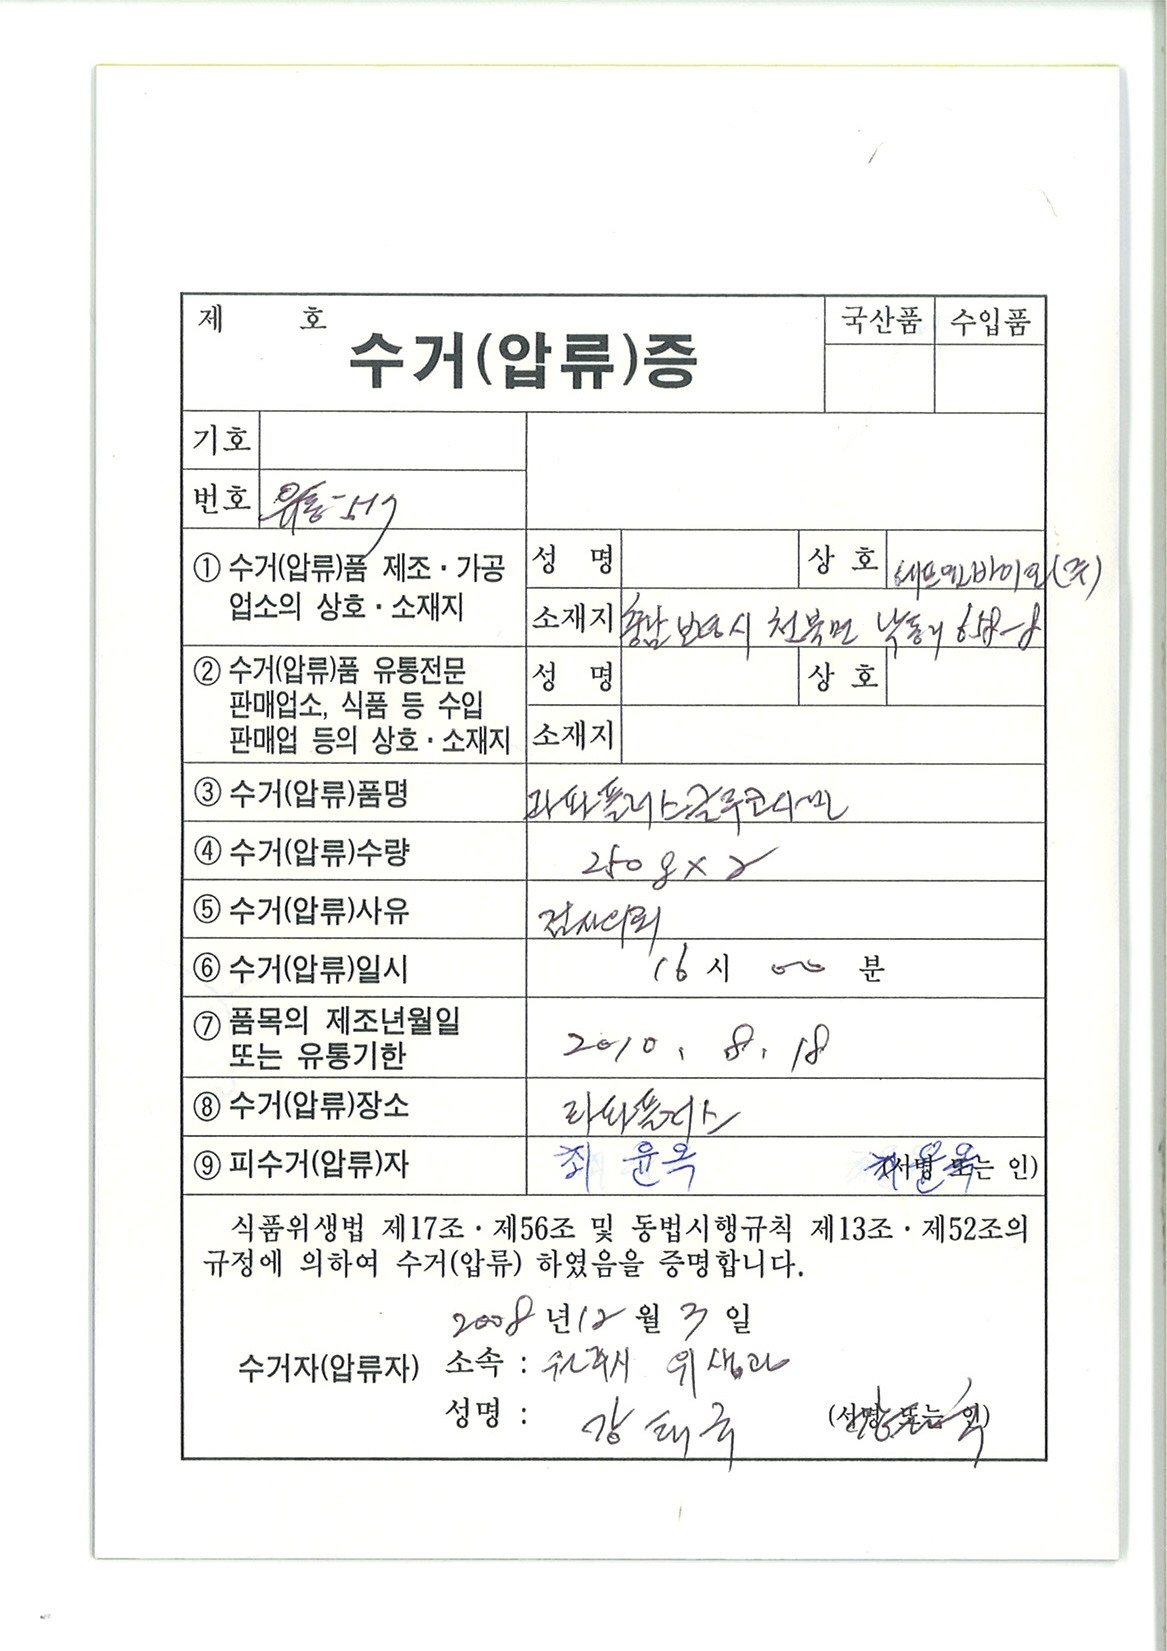 제 호
수거(압류)증
국산품 수입품
기호
번호 유통-517
① 수거(압류)품 제조·가공
업소의 상호·소재지
성 명 상 호 바이오(주)
소재지 충남 보령시 천북면 낙동리 658-8
② 수거(압류)품 유통전문
판매업소, 식품 등 수입
판매업 등의 상호·소재지
성 명 상 호
소재지
③ 수거(압류)품명 파파플러스글루코사민
④ 수거(압류)수량 250g×2
⑤ 수거(압류)사유 검사의뢰
⑥ 수거(압류)일시 16시 00분
⑦ 품목의 제조년월일
또는 유통기한
2010. 8. 18
⑧ 수거(압류)장소 파파플러스
⑨ 피수거(압류)자 최윤옥 (서명 또는 인)
식품위생법 제17조·제56조 및 동법시행규칙 제13조·제52조의
규정에 의하여 수거(압류) 하였음을 증명합니다.
2008년 12월 3일
수거자(압류자) 소속 : 위생과
성명 : 강태국 (서명 또는 인)